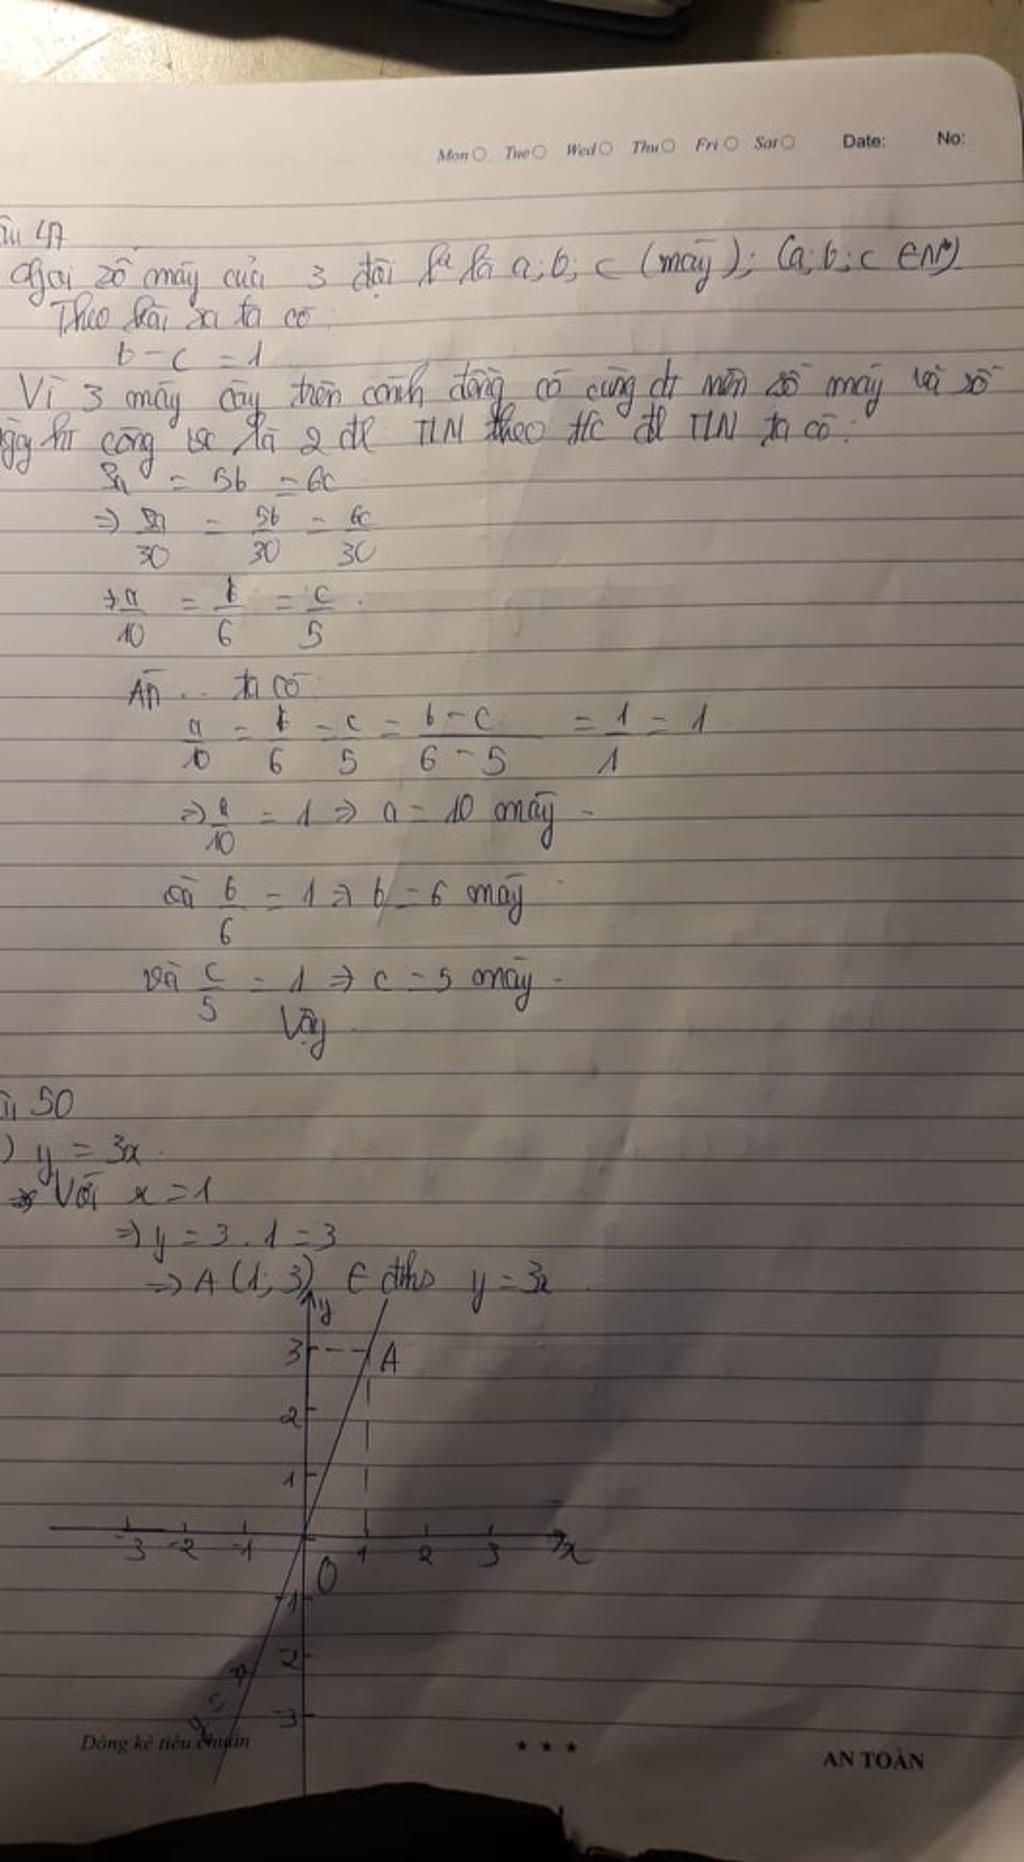 Mon Tue Wed Thu Fri Sat Date: No:
47
Gọi số máy của 3 đội là a; b; c (máy); (a; b; c ∈ N*)
Theo bài ra ta có:
b - c = 1
Vì 3 máy cày trên cánh đồng có cùng dt nên số máy và số
công là 2 đl TLN theo t/c đl TLN ta có:
3a = 5b = 6c
⇒ 3a/30 = 5b/30 = 6c/30
⇒ a/10 = b/6 = c/5
ta có:
a/10 = b/6 = c/5 = b - c/6 - 5 = 1/1 = 1
⇒ a/10 = 1 ⇒ a = 10 máy
và b/6 = 1 ⇒ b = 6 máy
và c/5 = 1 ⇒ c = 5 máy
Vậy
50
) y = 3x
Với x = 1
⇒ y = 3 . 1 = 3
⇒ A (1; 3) ∈ đths y = 3x
y
3 A
2
1
-3 -2 -1 1 2 3 x
O
-1
-2
-3
y = 3x
Dòng kẻ tiêu chuẩn *** AN TOÀN